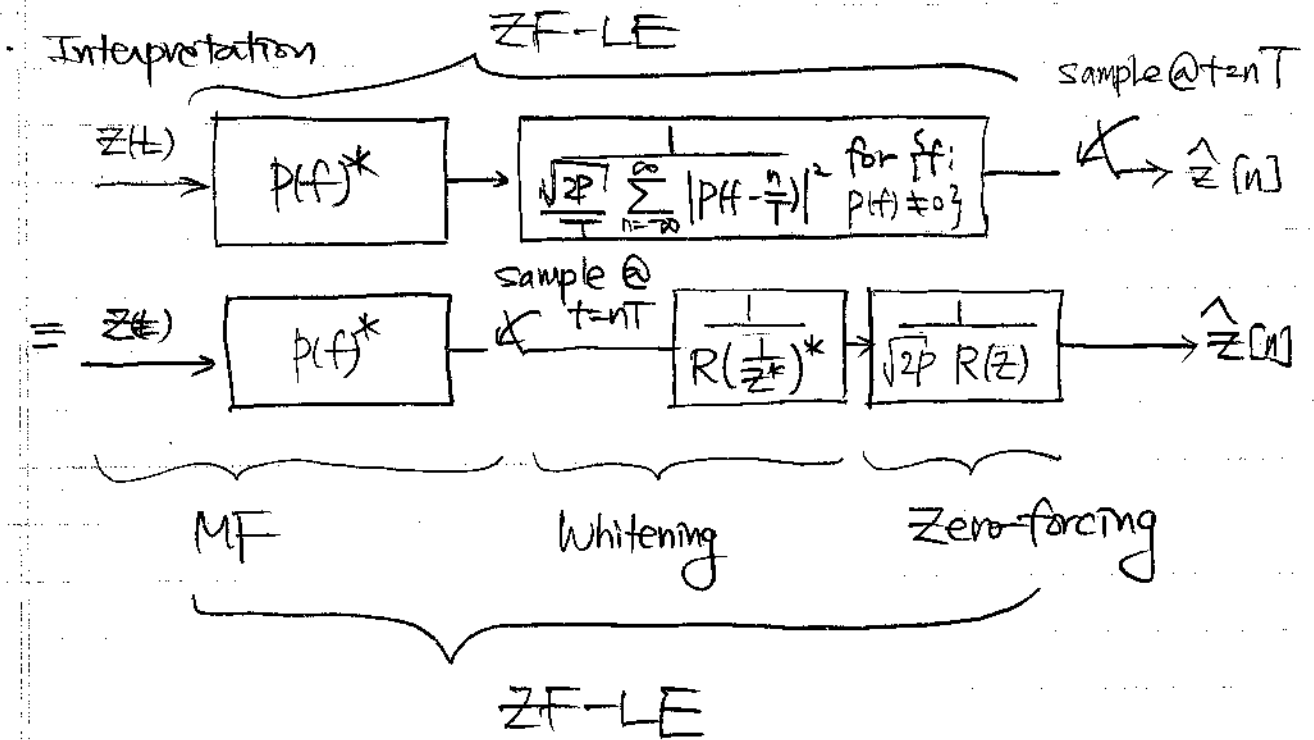 · Interpretation
ZF-LE
sample @ t=nT
Z(t)
P(f)*
1 / ( √2P/T ∑_{n=-∞}^{∞} |P(f-n/T)|² ) for {f: P(f)≠0}
ẑ[n]
sample @ t=nT
≡ Z(t)
P(f)*
1 / R(1/z*)*
1 / √2P R(z)
ẑ[n]
MF Whitening Zero-forcing
ZF-LE